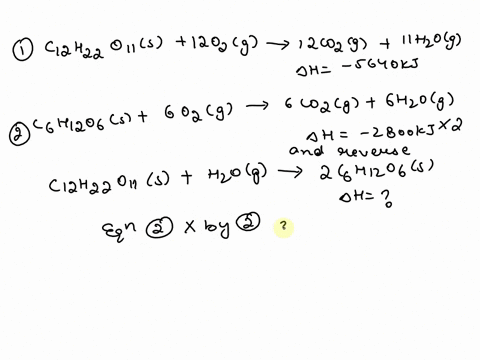 ① C12H22O11(s) + 12O2(g) → 12CO2(g) + 11H2O(g)
ΔH = -5640KJ
② C6H12O6(s) + 6O2(g) → 6CO2(g) + 6H2O(g)
ΔH = -2800KJ × 2
and reverse
C12H22O11(s) + H2O(g) → 2C6H12O6(s)
ΔH = ?
Eqn ② × by ② ?